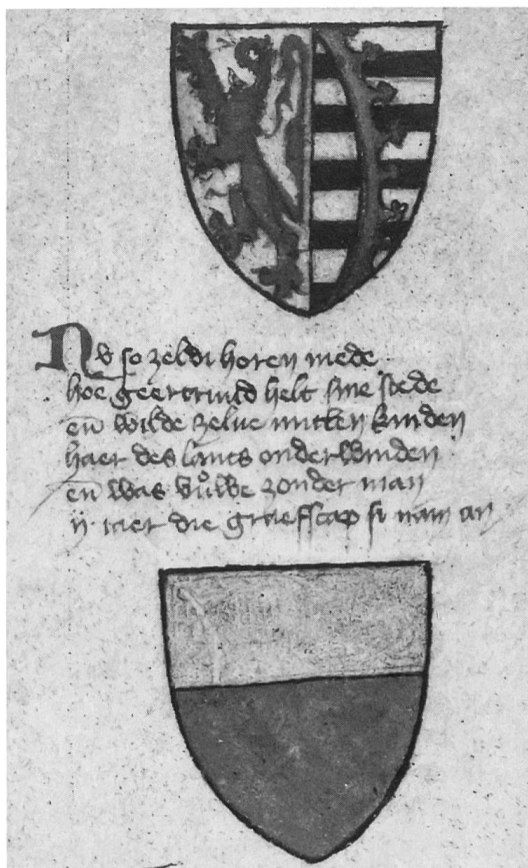 Nv so zeldi horen mede
hoe geertruud helt sine stede
eñ wilde zelue mitten kinden
haer des lants onderwinden
eñ was vrůwe zonder man
ij iaer die graefscap si nam an